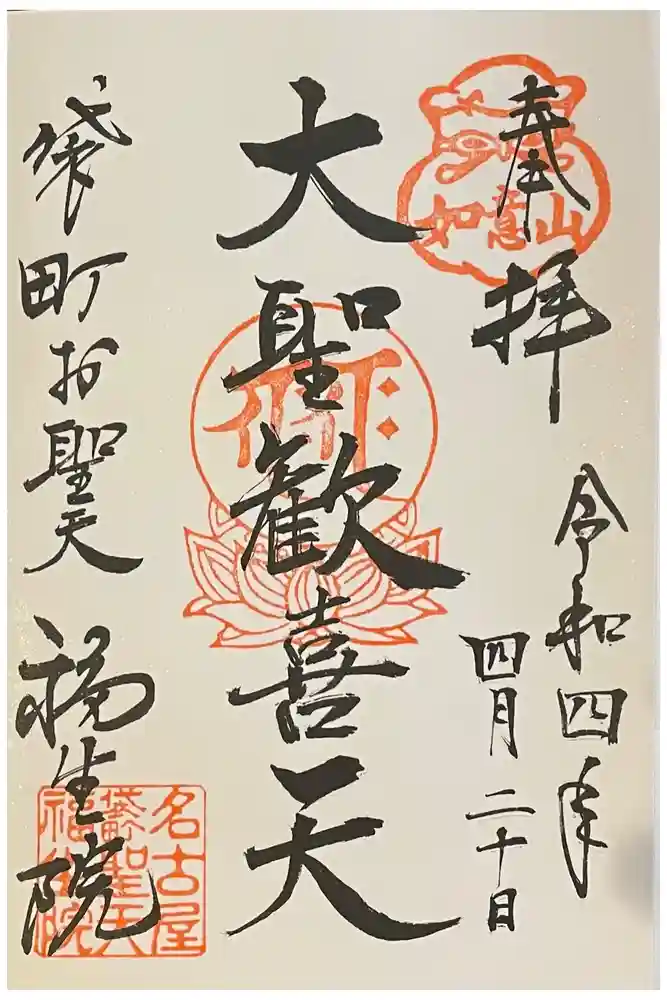 奉拝
如意山
令和四年
四月二十日
大聖歓喜天
袋町お聖天
福生院
名古屋
袋聖天
福生院